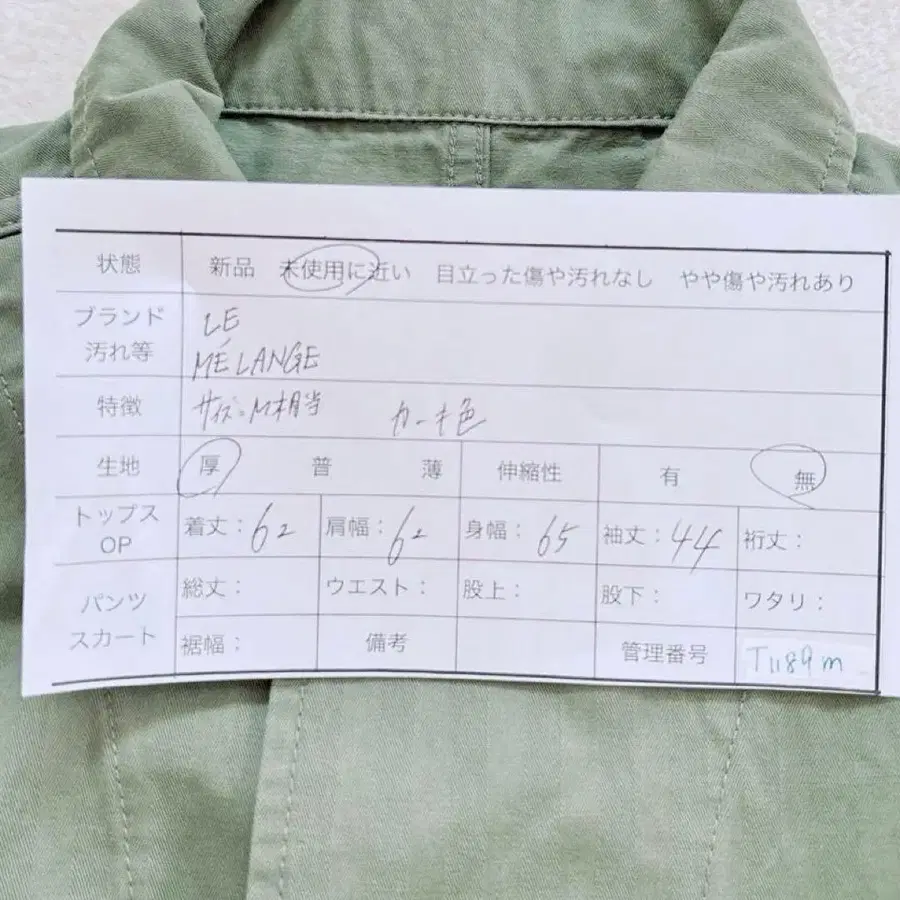 状態 新品 未使用に近い 目立った傷や汚れなし やや傷や汚れあり
ブランド LE
汚れ等 MÉLANGE
特徴 サイズ:M相当 カーキ色
生地 厚 普 薄 伸縮性 有 無
トップス OP 着丈:62 肩幅:62 身幅:65 袖丈:44 裄丈:
パンツ 総丈: ウエスト: 股上: 股下: ワタリ:
スカート 裾幅: 備考 管理番号 T1189m